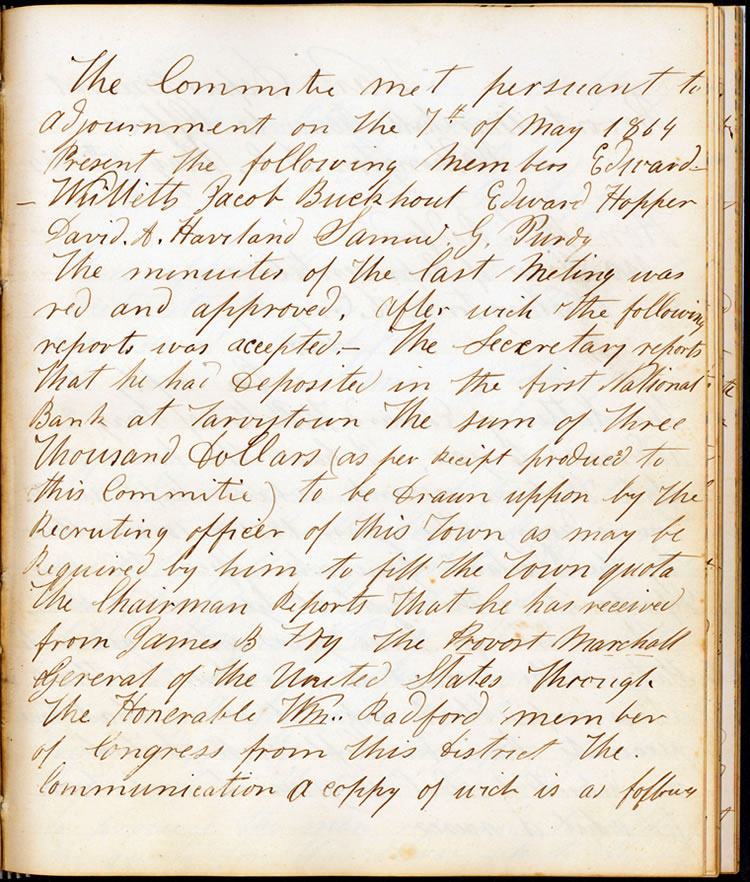 The Committie met persuant to
adjournment on the 7th of May 1864
Present the following Members Edward
- Willetts Jacob Buckhout Edward Hopper
David. A. Haviland Samuel G. Purdy
The minuites of the last Meting was
red and approved. after wich the following
reports was accepted. - The Secretary reports
that he had Deposited in the first National
Bank at Tarrytown the sum of three
thousand Dollars (as per Receipt produced to
this Committie) to be Drawn uppon by the
Recruting officer of this Town as may be
Required by him to fill the Town quota
The Chairman Reports that he has received
from James B Fry the Provost Marchall
General of the United States through
the Honerable Wm.. Radford member
of Congress from this District the.
Communication a coppy of wich is as follows